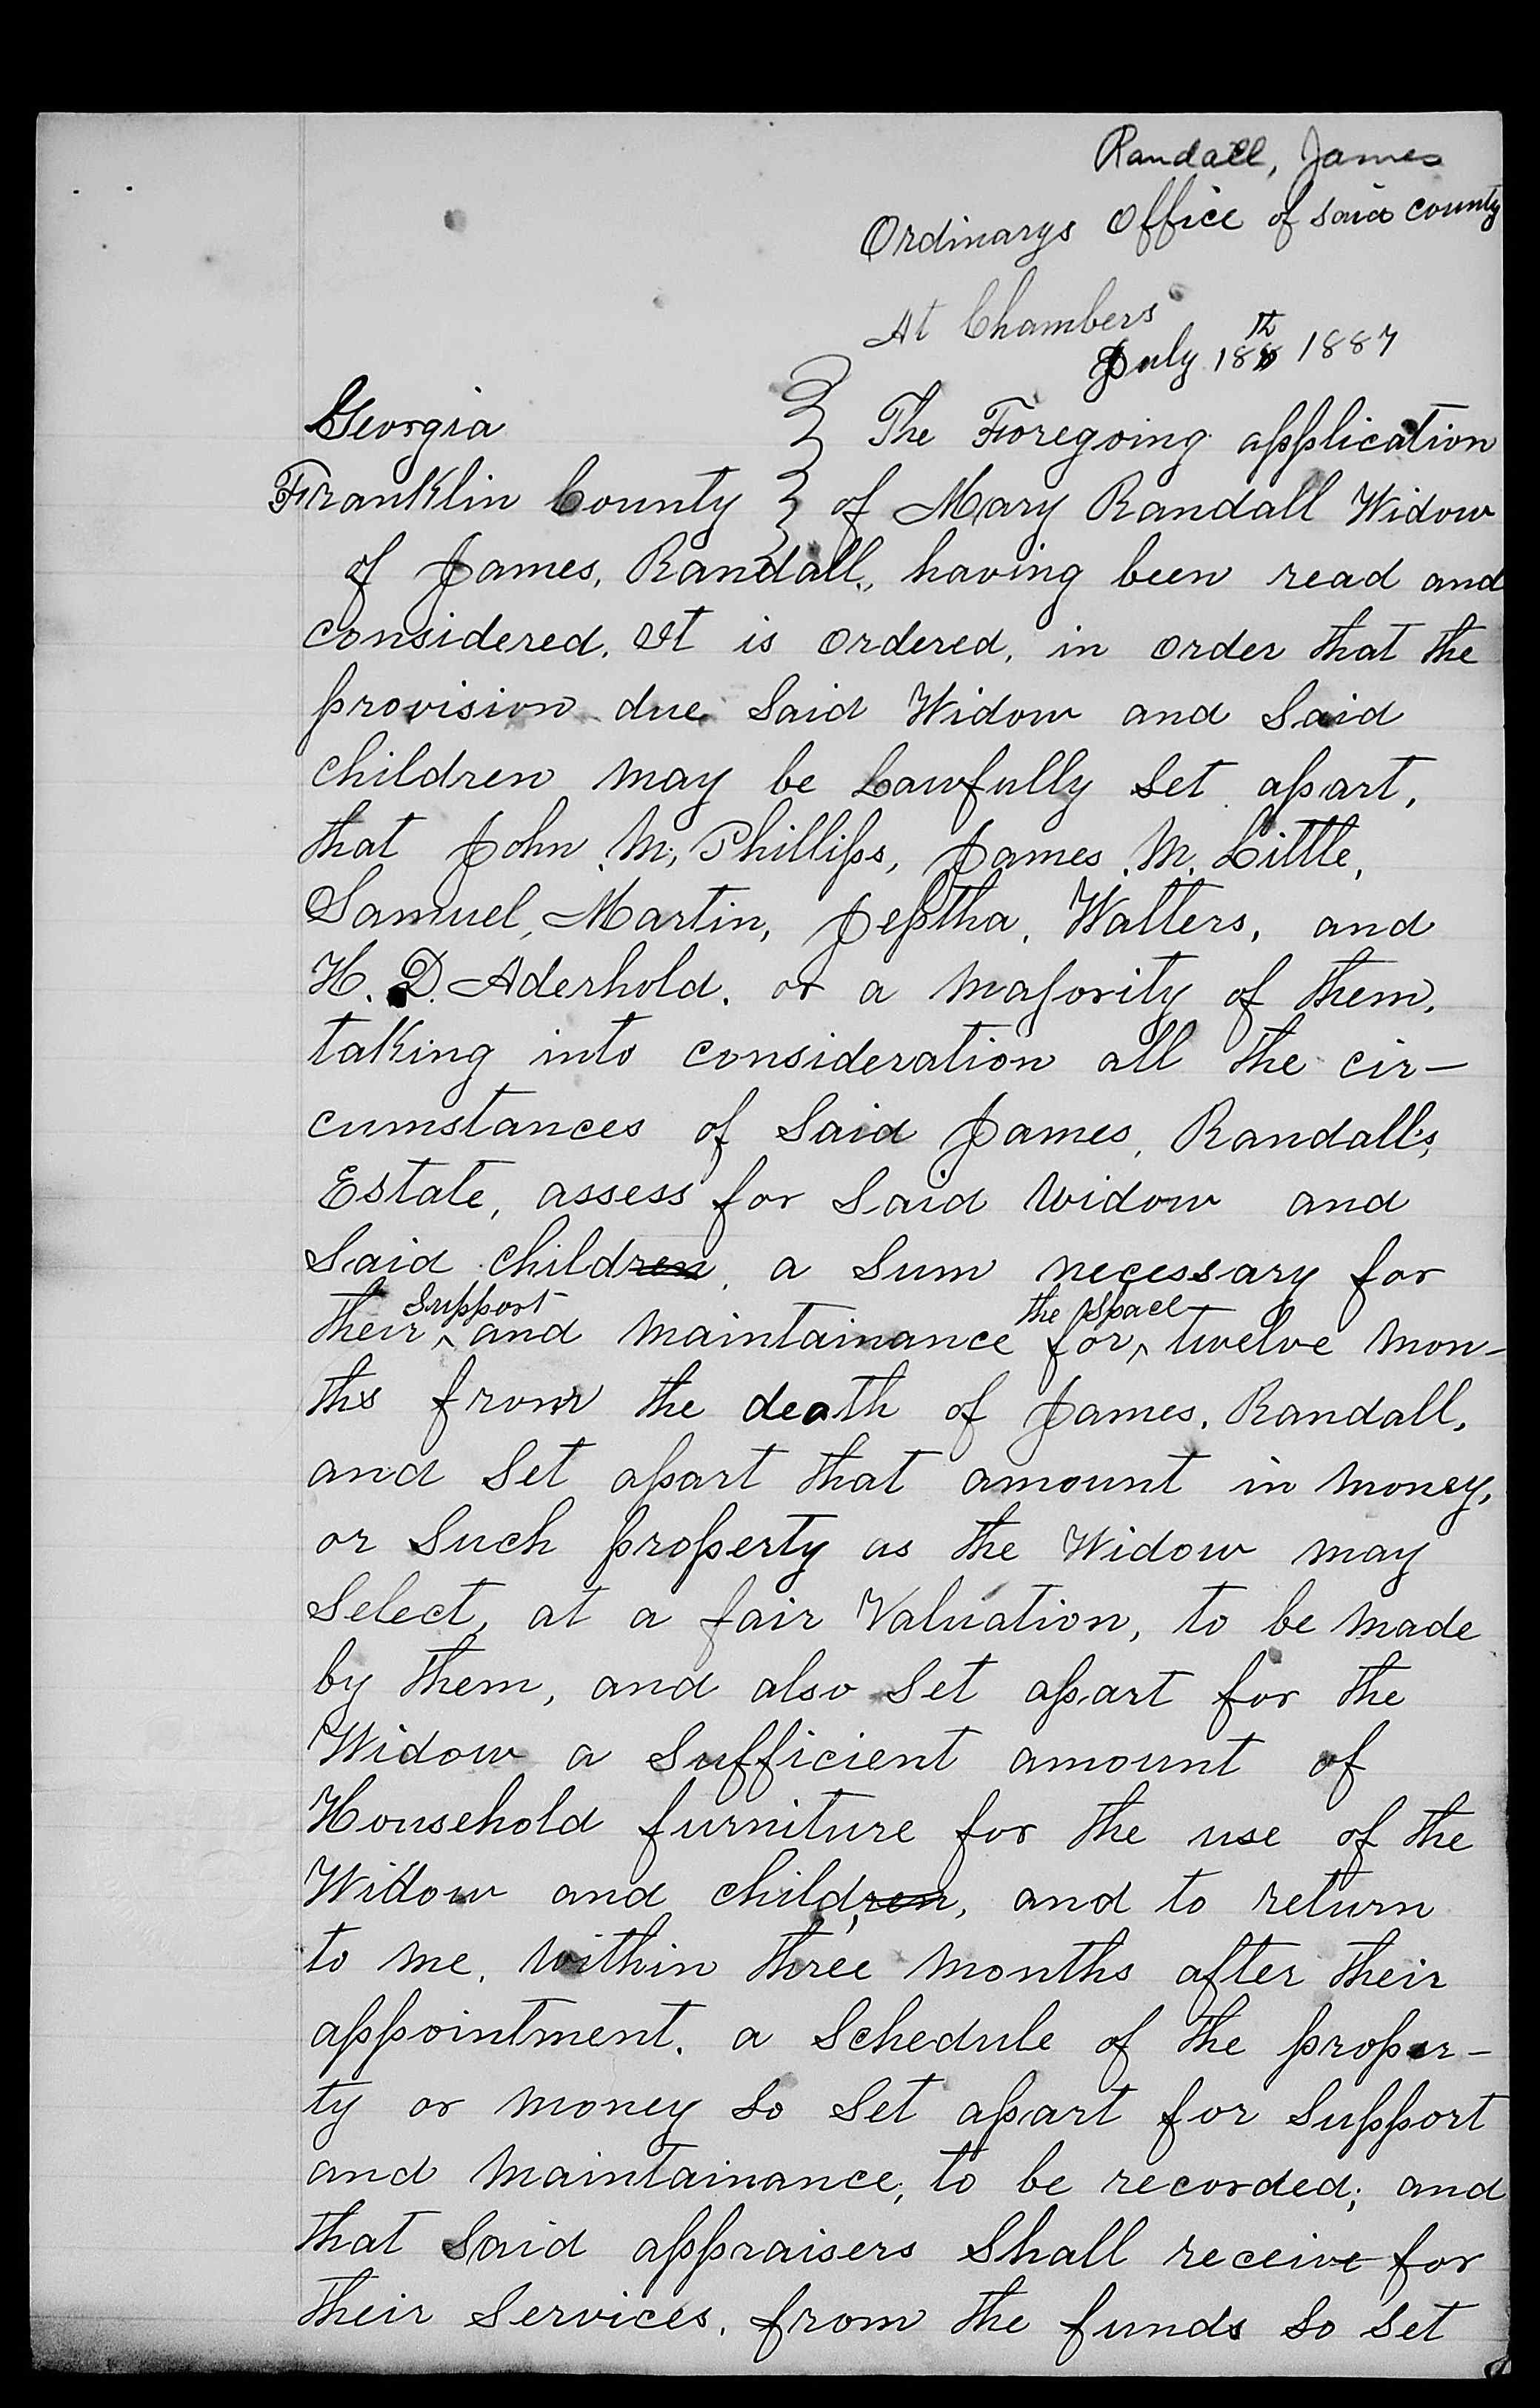 Randall, James
Ordinarys Office of said county
At Chambers
July 18th 1887
Georgia } The Foregoing application
Franklin County } of Mary Randall Widow
of James, Randall, having been read and
considered. It is ordered, in order that the
provision due Said Widow and Said
children may be Lawfully Set apart,
that John M, Phillips, James M. Little,
Samuel, Martin, Jeptha, Walters, and
H. D. Aderhold, or a majority of them,
taking into consideration all the cir-
cumstances of Said James, Randall's,
Estate, assess for Said widow and
Said children, a Sum necessary for
their Support and maintainance for the space twelve mon-
ths from the death of James, Randall,
and Set apart that amount in money,
or Such property as the Widow may
Select, at a fair Valuation, to be made
by them, and also Set apart for the
Widow a Sufficient amount of
Household furniture for the use of the
Widow and children, and to return
to me, within three months after their
appointment, a Schedule of the proper-
ty or money So Set apart for Support
and maintainance, to be recorded; and
that Said appraisers Shall receive for
their Services, from the funds So Set